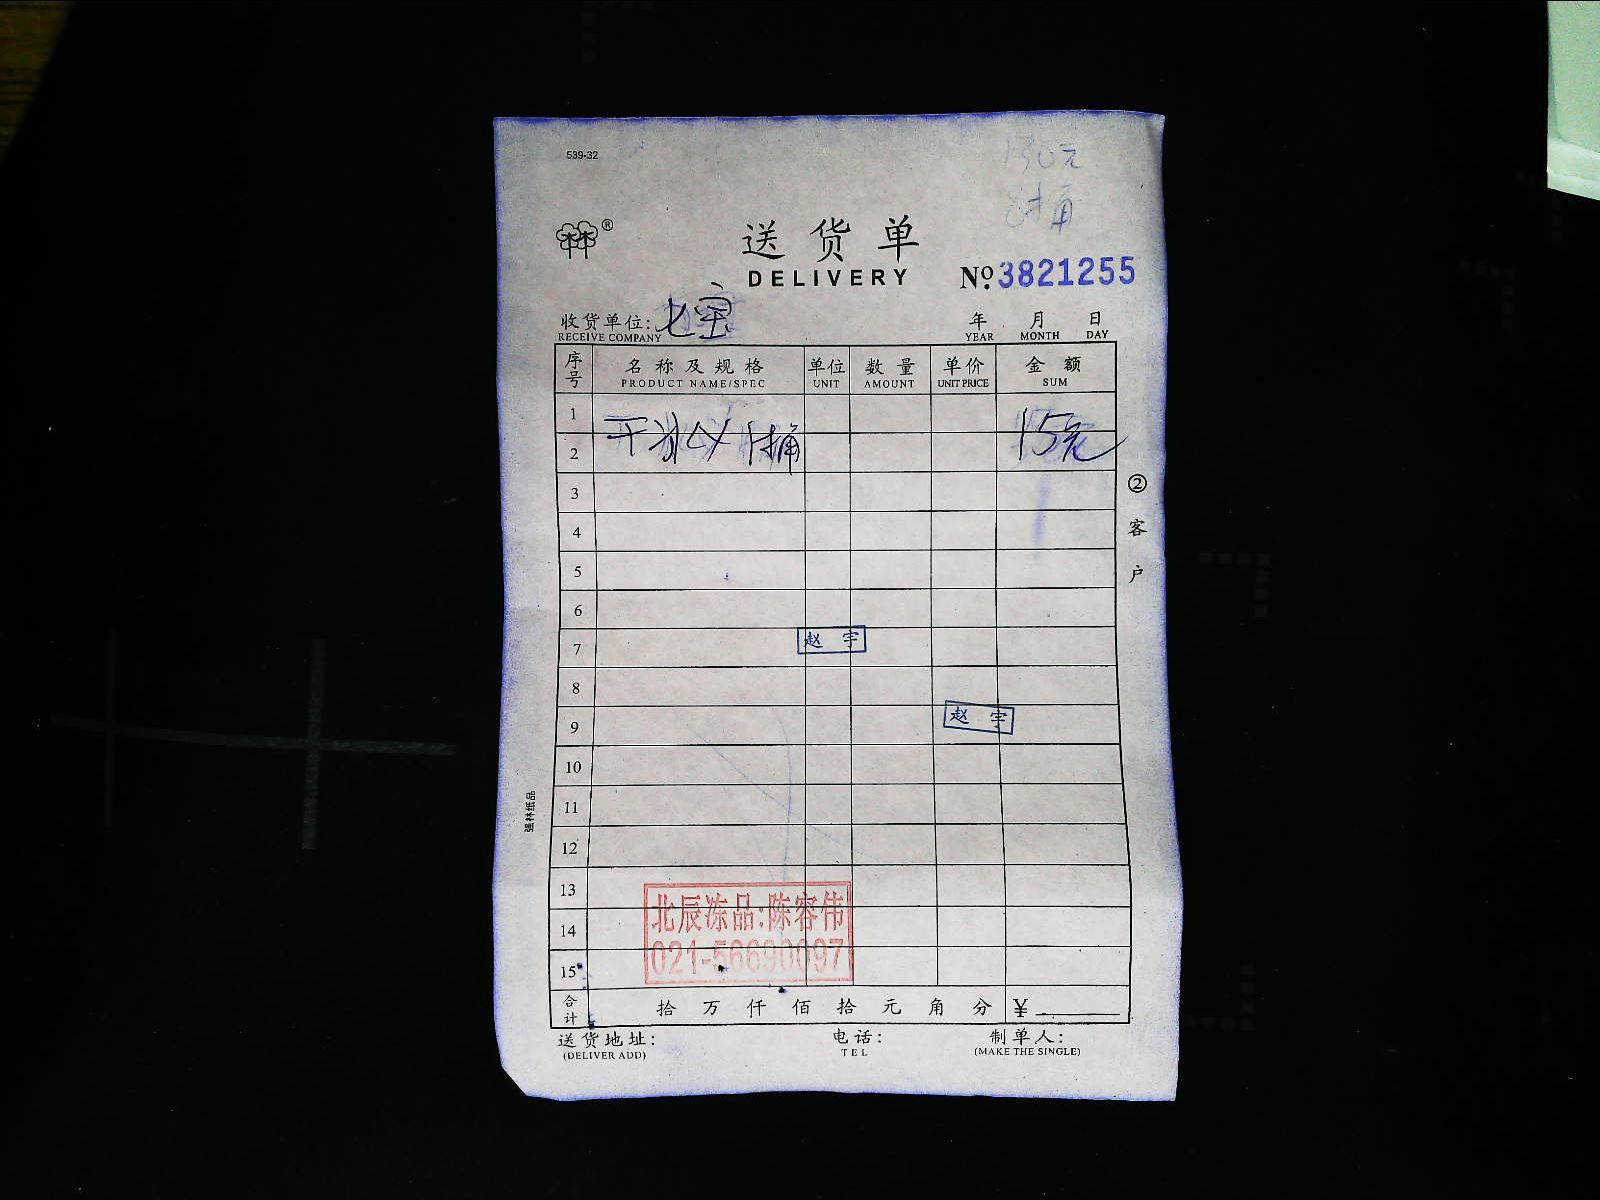 539-32
130元
送货单
DELIVERY
№ 3821255
收货单位: 七宝
RECEIVE COMPANY
年 月 日
YEAR MONTH DAY
序号 名称及规格 单位 数量 单价 金额
PRODUCT NAME/SPEC UNIT AMOUNT UNIT PRICE SUM
1
干冰 15元
2
3
4
5
6
7
赵宇
8
9
赵宇
10
11
12
13
14
15
② 客户
强林纸品
北辰冻品:陈容伟
021-56690097
合计 拾 万 仟 佰 拾 元 角 分 ¥
送货地址: 电话: 制单人:
(DELIVER ADD) TEL (MAKE THE SINGLE)